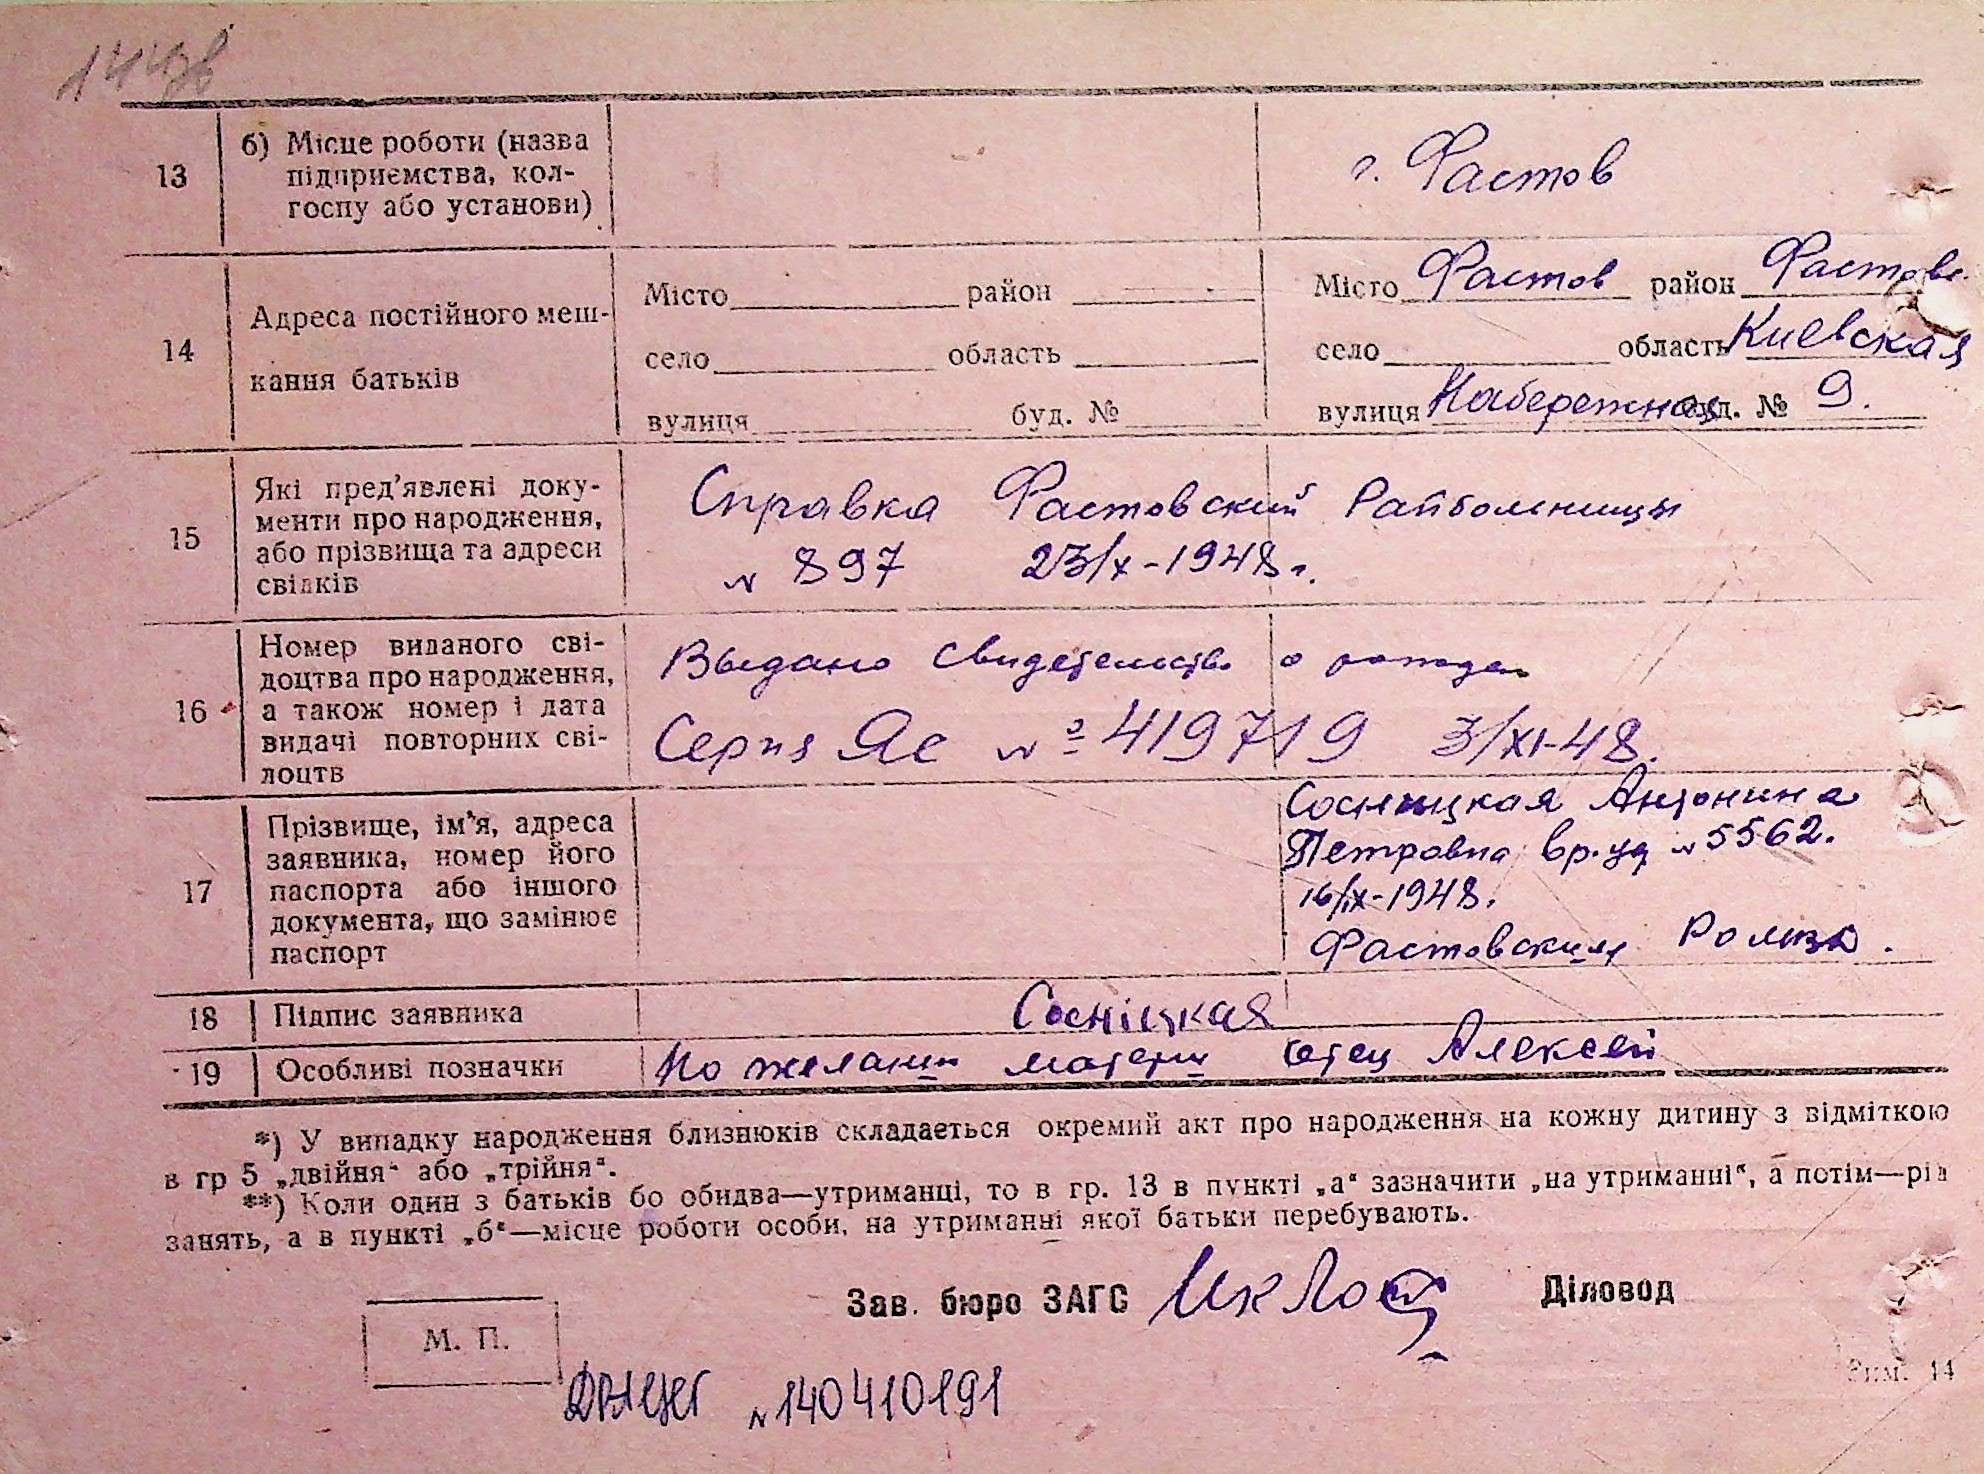 13
б) Місце роботи (назва
підприємства, кол-
госпу або установи)
г. Фастов
14
Адреса постійного меш-
кання батьків
Місто район
село область
вулиця буд. №
Місто Фастов район Фастовс.
село область Киевская
вулиця Набережная буд. № 9.
15
Які пред'явлені доку-
менти про народження,
або прізвища та адреси
свідків
Справка Фастовский Райбольницы
№ 897 23/X-1948г.
16
Номер виданого сві-
доцтва про народження,
а також номер і дата
видачі повторних сві-
доцтв
Выдано свидетельство о
Серия ЯС № 419719 3/XI-48.
17
Прізвище, ім'я, адреса
заявника, номер його
паспорта або іншого
документа, що замінює
паспорт
Сосницкая Антонина
Петровна вр.уд № 5562.
16/IX-1948.
Фастовским
18
Підпис заявника
Сосніцкая
19
Особливі позначки
По желании матери отец Алексей
*) У випадку народження близнюків складається окремий акт про народження на кожну дитину з відміткою
в гр 5 „двійня“ або „трійня“.
**) Коли один з батьків бо обидва—утриманці, то в гр. 13 в пункті „а“ зазначити „на утриманні“, а потім—рід
занять, а в пункті „б“—місце роботи особи, на утриманні якої батьки перебувають.
Зав. бюро ЗАГС
Діловод
М. П.
№ 140410191
Зим. 14